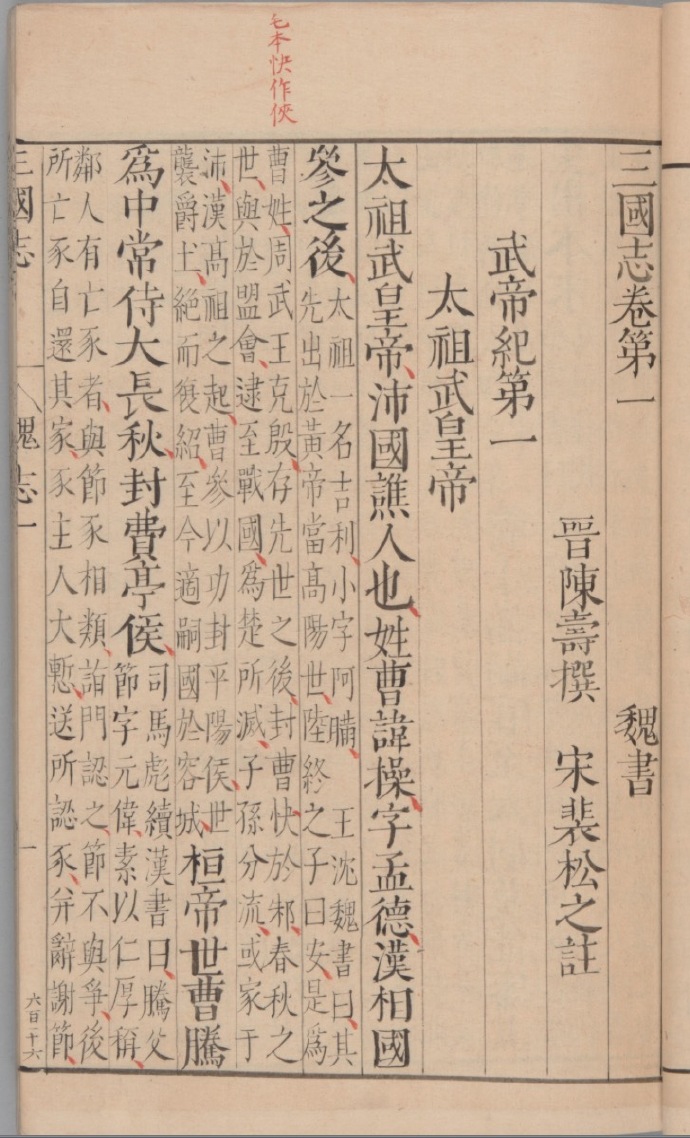 毛本快作俠
三國志卷第一 魏書
晉陳壽撰 宋裴松之註
武帝紀第一
太祖武皇帝
太祖武皇帝沛國譙人也姓曹諱操字孟德漢相國
參之後
太祖一名吉利小字阿瞞 王沈魏書曰其
先出於黃帝當高陽世陸終之子曰安是爲
曹姓周武王克殷存先世之後封曹快於邾春秋之
世與於盟會逮至戰國爲楚所滅子孫分流或家于
沛漢髙祖之起曹參以功封平陽侯世
襲爵土絕而復紹至今適嗣國於容城
桓帝世曹騰
爲中常侍大長秋封費亭侯
司馬彪續漢書曰騰父
節字元偉素以仁厚稱
鄰人有亡豕者與節豕相類詣門認之節不與爭後
所亡豕自還其家豕主人大慙送所認豕并辭謝節
三國志 魏志一 一